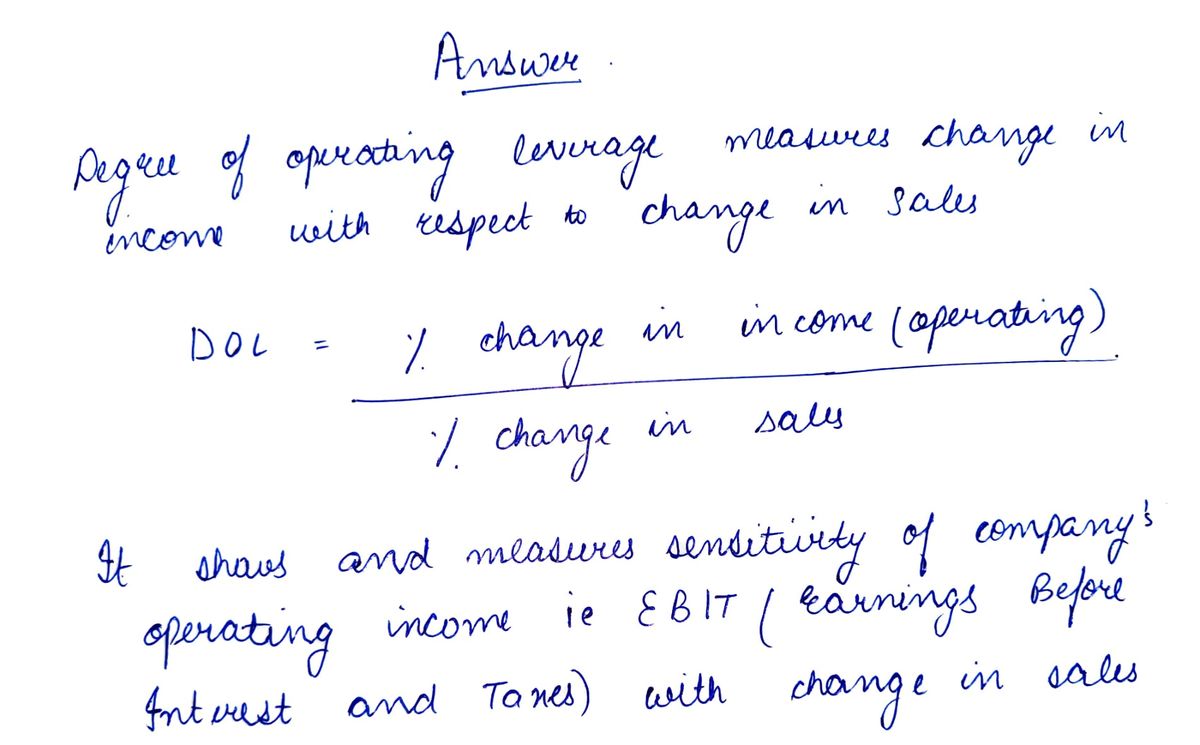 Answer
Degree of operating leverage measures change in
income with respect to change in sales
DOL = % change in income (operating)
% change in sales
It shows and measures sensitivity of company's
operating income ie EBIT (Earnings Before
Interest and Taxes) with change in sales